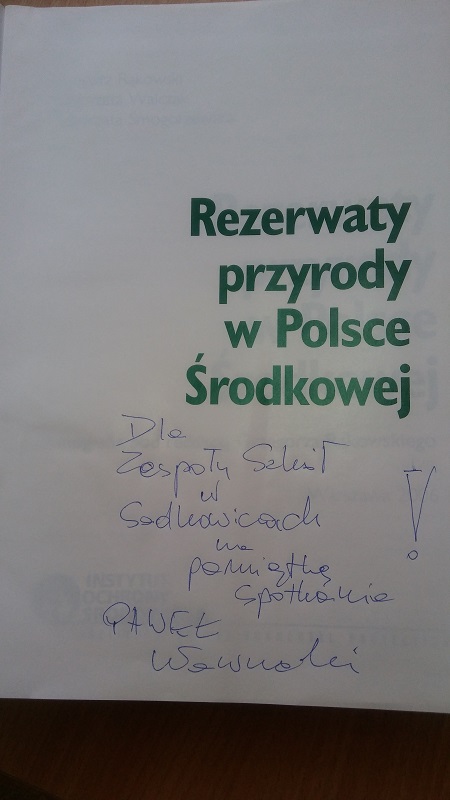 Rezerwaty
przyrody
w Polsce
Środkowej
Dla
Zespołu Szkół
w
Sadkowicach
na
pamiątkę
spotkania
!
PAWEŁ